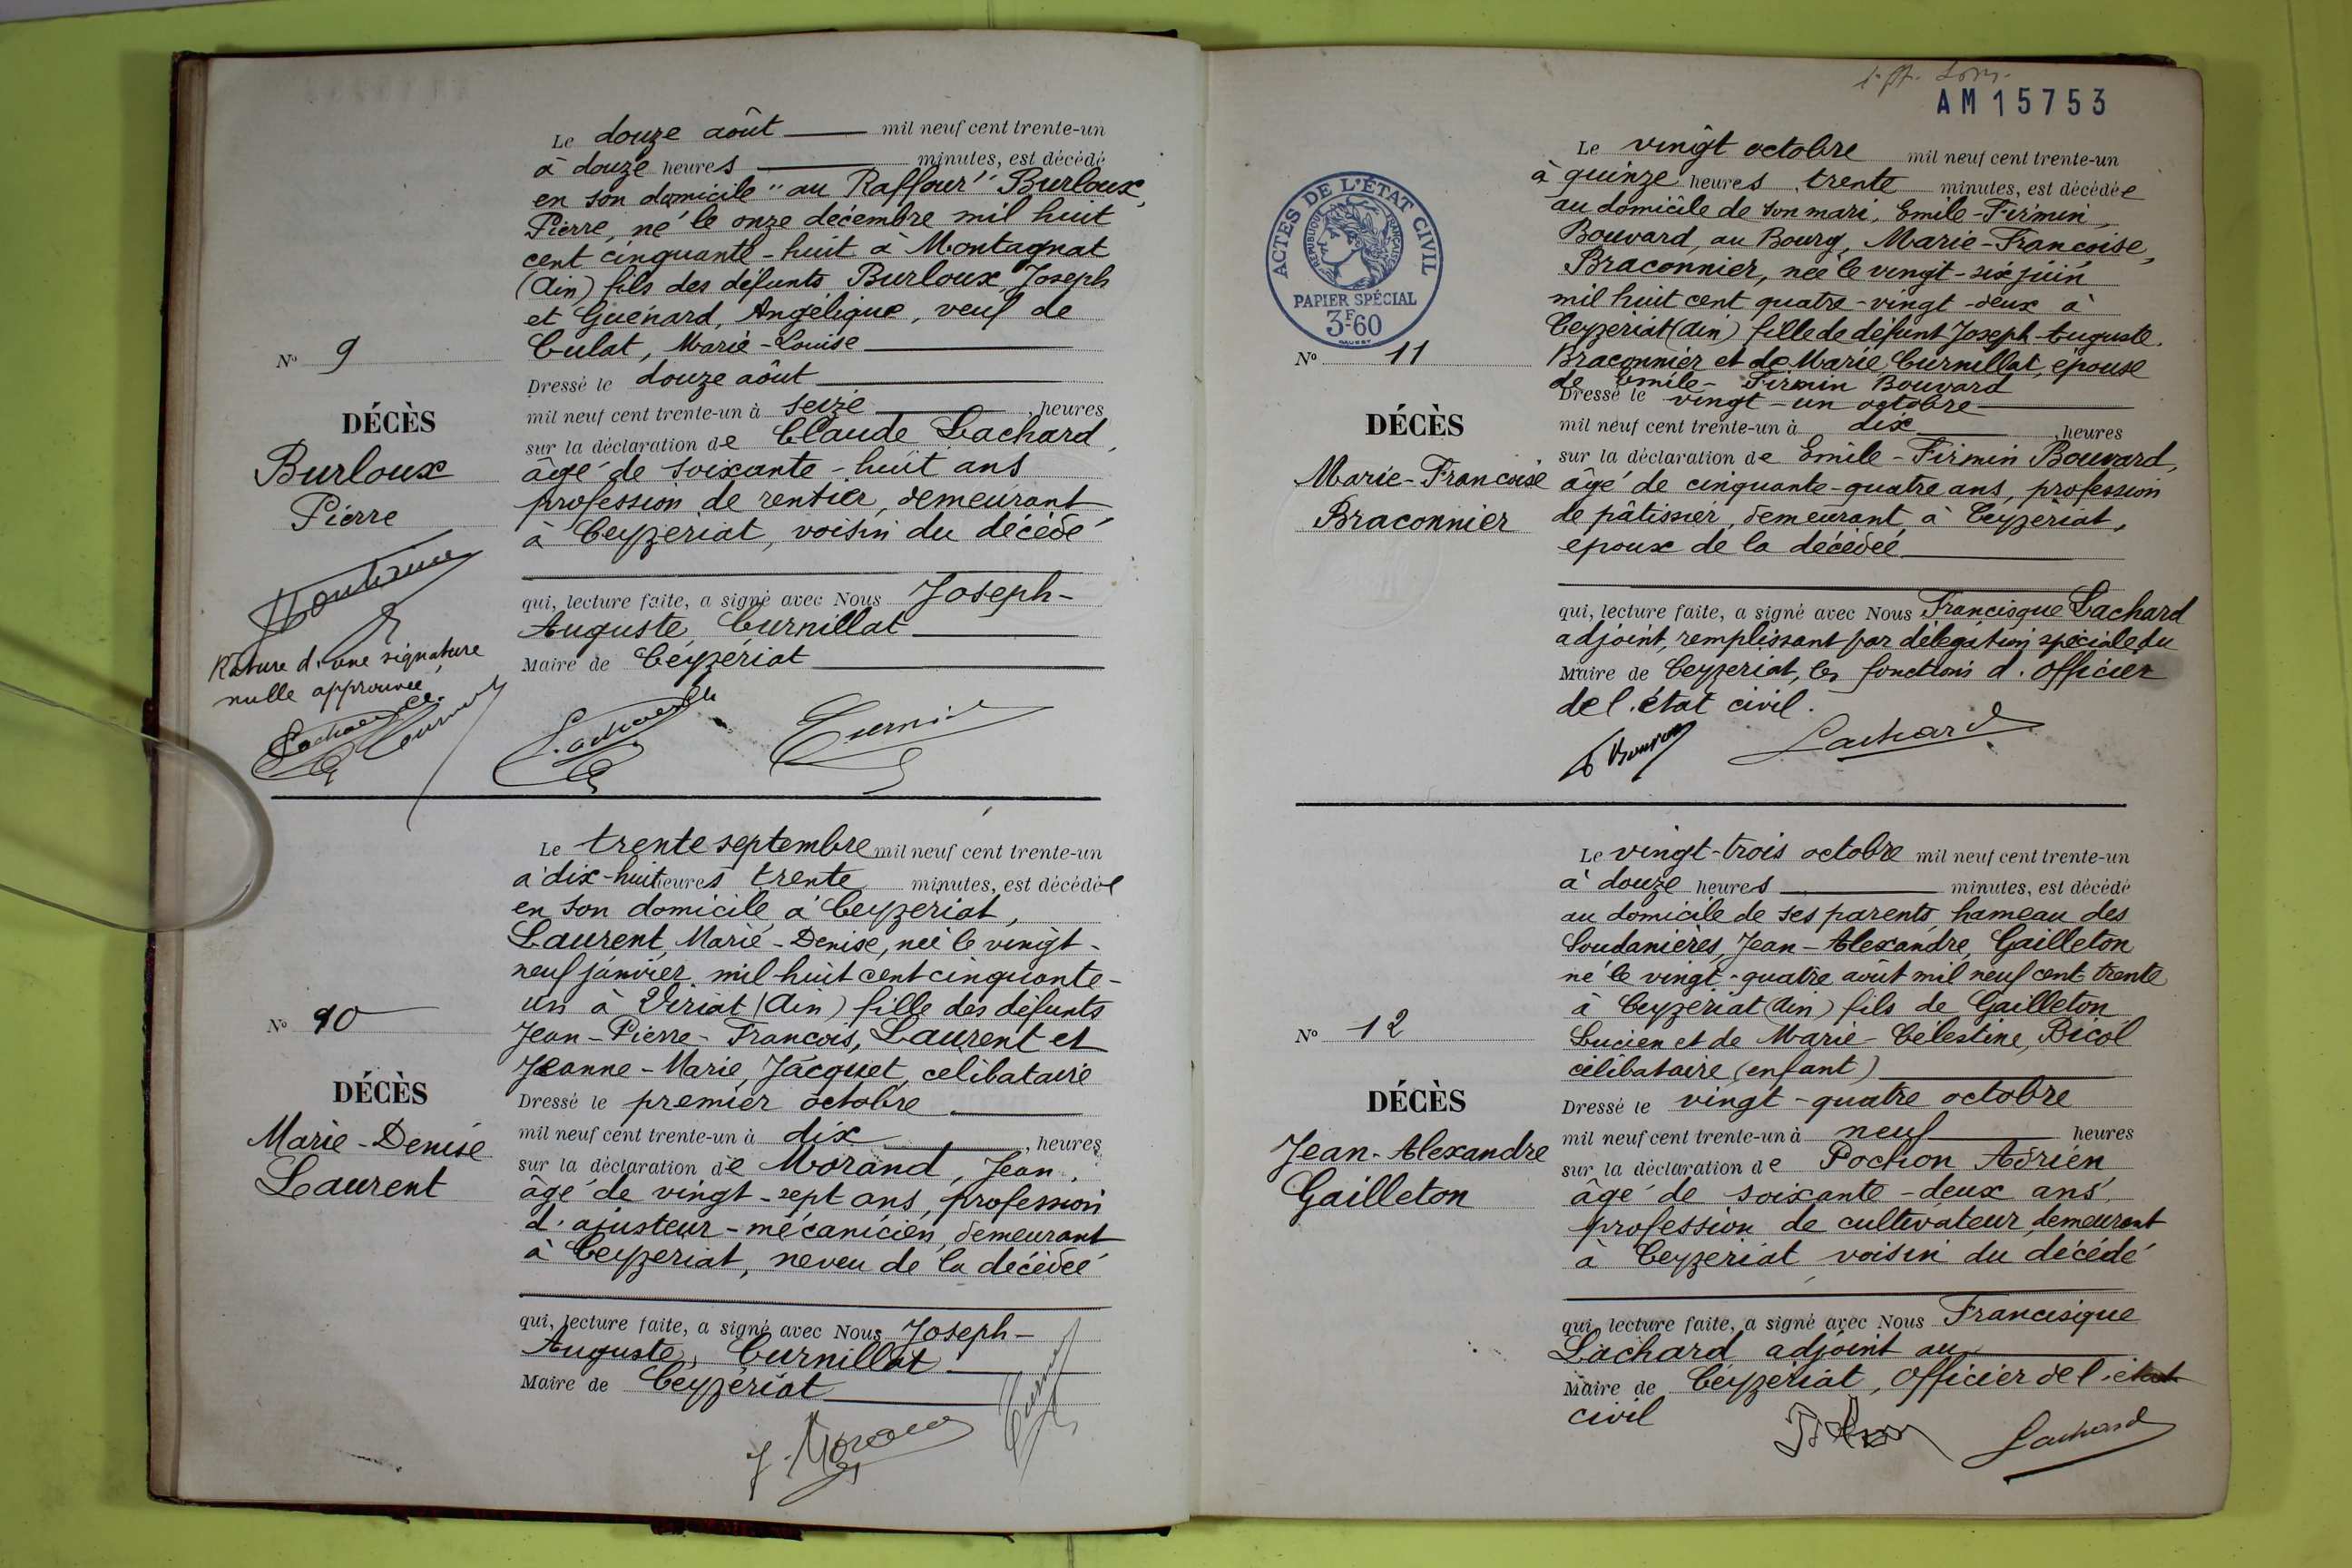 Le douze août mil neuf cent trente-un
à douze heures minutes, est décédé
en son domicile "au Raffour" Burloux,
Pierre, né le onze décembre mil huit
cent cinquante-huit à Montagnat
(Ain) fils des défunts Burloux, Joseph
et Guenard, Angélique, veuf de
Culat, Marie-Louise
N° 9
Dressé le douze août
mil neuf cent trente-un à seize heures
DÉCÈS
sur la déclaration de Claude Lachard,
Burloux
Pierre
âgé de soixante-huit ans
profession de rentier, demeurant
à Ceyzeriat, voisin du décédé
qui, lecture faite, a signé avec Nous Joseph-
Auguste, Curnillat
Maire de Ceyzériat
Rature d'une signature
nulle approuvée
Lachard
Lachard
Le trente septembre mil neuf cent trente-un
à dix-huit heures trente minutes, est décédée
en son domicile à Ceyzeriat,
Laurent, Marie-Denise, née le vingt-
neuf janvier mil huit cent cinquante-
un à Viriat (Ain) fille des défunts
Jean-Pierre-François, Laurent et
Jeanne-Marie, Jacquet, célibataire
N° 10
Dressé le premier octobre
DÉCÈS
Marie-Denise
Laurent
mil neuf cent trente-un à dix, heures
sur la déclaration de Morand, Jean,
âgé de vingt-sept ans, profession
d'ajusteur-mécanicien, demeurant
à Ceyzeriat, neveu de la décédée
qui, lecture faite, a signé avec Nous Joseph-
Auguste, Curnillat
Maire de Ceyzériat
J. Morand
AM15753
ACTES DE L'ÉTAT CIVIL
RÉPUBLIQUE FRANÇAISE
PAPIER SPÉCIAL
3F60
Le vingt octobre mil neuf cent trente-un
à quinze heures trente minutes, est décédée
au domicile de son mari, Emile-Firmin,
Bouvard, au Bourg, Marie-Françoise,
Braconnier, née le vingt-six juin
mil huit cent quatre-vingt-deux à
Ceyzeriat (Ain) fille de défunt Joseph-Auguste
Braconnier et de Marie Curnillat, épouse
de Emile-Firmin Bouvard
N° 11
Dressé le vingt-un octobre
mil neuf cent trente-un à dix, heures
DÉCÈS
Marie-Françoise
Braconnier
sur la déclaration de Emile-Firmin Bouvard,
âgé de cinquante-quatre ans, profession
de pâtissier, demeurant à Ceyzeriat,
époux de la décédée
qui, lecture faite, a signé avec Nous Francisque Lachard
adjoint, remplissant par délégation spéciale du
Maire de Ceyzeriat, les fonctions d'officier
de l'état civil.
Lachard
Le vingt-trois octobre mil neuf cent trente-un
à douze heures minutes, est décédé
au domicile de ses parents, hameau des
Soudanières, Jean-Alexandre, Gailleton
né le vingt-quatre août mil neuf cent trente
à Ceyzeriat (Ain) fils de Gailleton
Lucien et de Marie-Célestine, Bicol
célibataire (enfant)
N° 12
Dressé le vingt-quatre octobre
DÉCÈS
Jean-Alexandre
Gailleton
mil neuf cent trente-un à neuf heures
sur la déclaration de Pochon Adrien
âgé de soixante-deux ans
profession de cultivateur, demeurant
à Ceyzeriat voisin du décédé
qui, lecture faite, a signé avec Nous Francisque
Lachard adjoint au
Maire de Ceyzériat, officier de l'état
civil
Lachard